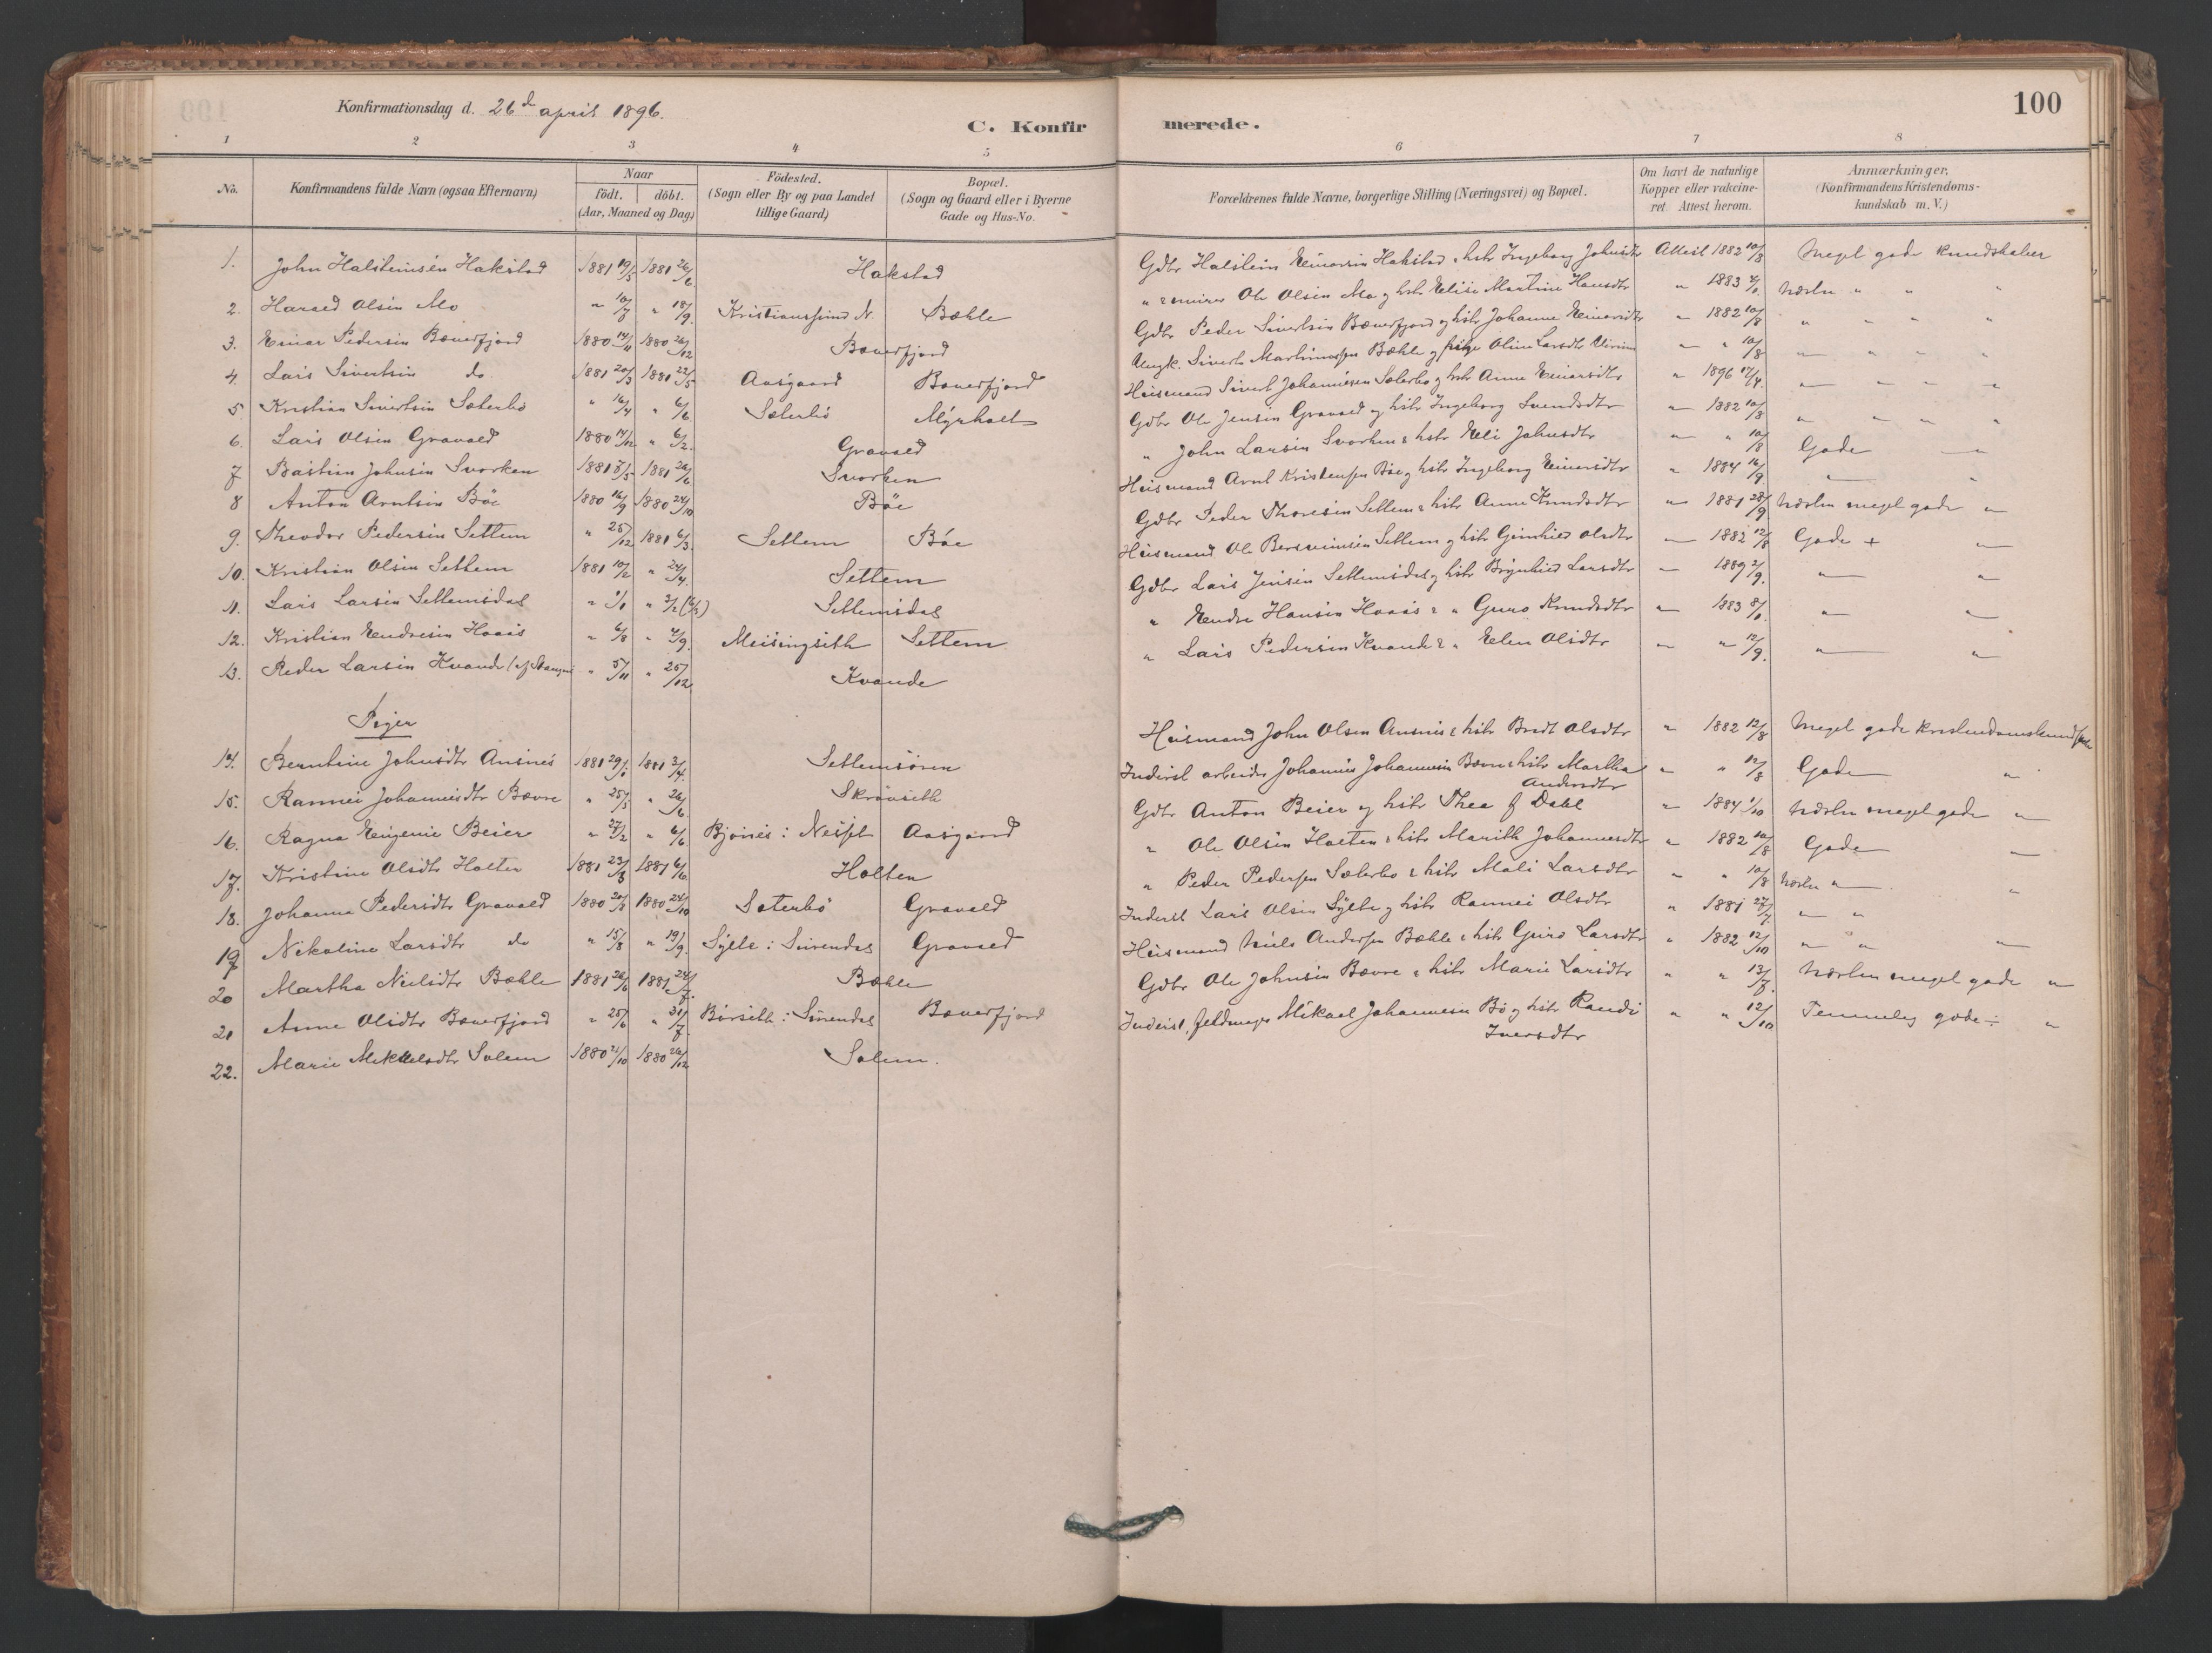 Konfirmationsdag d. 26de april 1896.
C. Konfirmerede.
100
1 2 3 4 5 6 7 8
No.
Konfirmandens fulde Navn (ogsaa Efternavn)
Naar
födt. döbt.
(Aar, Maaned og Dag)
Födested.
(Sogn eller By og paa Landet
tillige Gaard)
Bopæl.
(Sogn og Gaard eller i Byerne
Gade og Hus-No.
Forældrenes fulde Navne, borgerlige Stilling (Næringsvei) og Bopæl.
Om havt de naturlige
Kopper eller vakcine-
ret Attest herom.
Anmærkninger,
(Konfirmandens Kristendoms-
kundskab m. V.)
1. John Halsteinsen Hakstad 1881 19/5 1881 26/6 Hakstad Gdbr Halstein Einarsen Hakstad & hstr Ingeborg Johnsdtr Attest 1882 10/8 Meget gode kundskaber
2. Harald Olsen Mo " 10/8 " 18/9 Kristianssund N. Bæhle " Ole Olsen Mo og hstr Elise Martine Hansdtr " 1883 Næsten " " "
3. Einar Pedersen Bæverfjord 1880 14/11 1880 26/12 Bæverfjord Gdbr Peder Sivertsen Bæverfjord og hstr Johanne Einarsdtr " 1882 10/8 " " " "
4. Lars Sivertsen do 1881 20/3 1881 22/5 Aasgaard Bæverfjord Ungk. Sivert Martinussen Bæhle og pige Oline Larsdtr " " 10/8 " " " "
5. Kristian Sivertsen Sæterbö " 16/4 " 6/6 Sæterbö Myrholt Husmand Sivert Johannesen Sæterbö og hstr Anne Einarsdtr " 1896 17/4. " " " "
6. Lars Olsen Gravald 1880 14/12 " 6/2. Gravald Gdbr Ole Jensen Gravald og hstr Ingeborg Svendsdtr " 1882 10/8 " " " "
7 Bastian Johnsen Svorken 1881 8/5 1881 26/6 Svorken " John Larsen Svorken & hstr Eli Johnsdtr " " 10/8 Gode "
8 Anton Arntsen Böe 1880 16/9 1880 24/10 Böe Husmand Arnt Kristensen Böe og hstr Ingeborg Einarsdtr " 1884 16/9 " "
9. Theodor Pedersen Settem " 25/12 1881 6/3. Settem Böe Gdbr Peder Thoresen Settem & hstr Anne Knudsdtr " 1881 28/9 Næsten meget gode "
10. Kristian Olsen Settem 1881 10/2 " 24/4. Settem Husmand Ole Bersveinsen Settem og hstr Gunhild Olsdtr " 1882 12/8 Gode + "
11. Lars Larsen Settemsdal " 1/1 " 2/2 (6/3) Settemsdal Gdbr Lars Jensen Settemsdal og hstr Brynhild Larsdtr " 1889 2/9. " "
12. Kristian Endresen Hoaas " 6/8 " 4/9. Meisingseth Settem " Endre Hansen Hoaas & " Guro Knudsdtr " 1883 " "
13. Peder Larsen Kvande " 5/11 " 25/12 Kvande " Lars Pedersen Kvande & " Elen Olsdtr " " 12/9. " "
Piger
14. Berntine Johnsdtr Ansnes 1881 29/1 1881 3/4. Settemsören Husmand John Olsen Ansnes & hstr Brit Olsdtr " 1882 12/8 Meget gode kristendomskundskab
15. Rannei Johannesdtr Bævre " 25/5 " 26/6 Skrövseth Inderst arbeider Johannes Johannesen Bævre & hstr Martha Andersdtr " " 12/8 Gode "
16. Ragna Eugenie Beier " 27/2 " 6/6 Bjönes i Nesset Aasgaard Gdbr Anton Beier og hstr Thea f Dahl " 1884 1/10 Næsten meget gode "
17. Kristine Olsdtr Holten 1881 23/3 1881 6/6 Holten " Ole Olsen Holten & hstr Marith Johannesdtr " 1882 10/8 Gode "
18. Johanna Pedersdtr Gravald 1880 20/8 1880 24/10 Sæterbö Gravald " Peder Pedersen Sæterbo & hstr Mali Larsdtr " " 10/8 Næsten " "
19 Nikoline Larsdtr do " 15/8 " 19/9. Sylte i Surendal Gravald Inderst Lars Olsen Sylte og hstr Rannei Olsdtr " 1881 27/7 " "
20 Martha Nielsdtr Bæhle 1881 26/6 1881 24/7. Bæhle Husmand Niels Andersen Bæhle & hstr Guro Larsdtr " 1882 12/10 " " "
21 Anne Olsdtr Bæverfjord " 25/6 " 31/7. Börseth i Surendal Bæverfjord Gdbr Ole Johnsen Bævre & hstr Marie Larsdtr " " 13/8. Næsten meget gode "
22. Marie Mikkelsdtr Solem 1880 21/10 1880 26/12 Solem. Inderst, Mikael Johannesen Bö og hstr Randi Iversdtr " " 12/10 Temmelig gode ÷ "